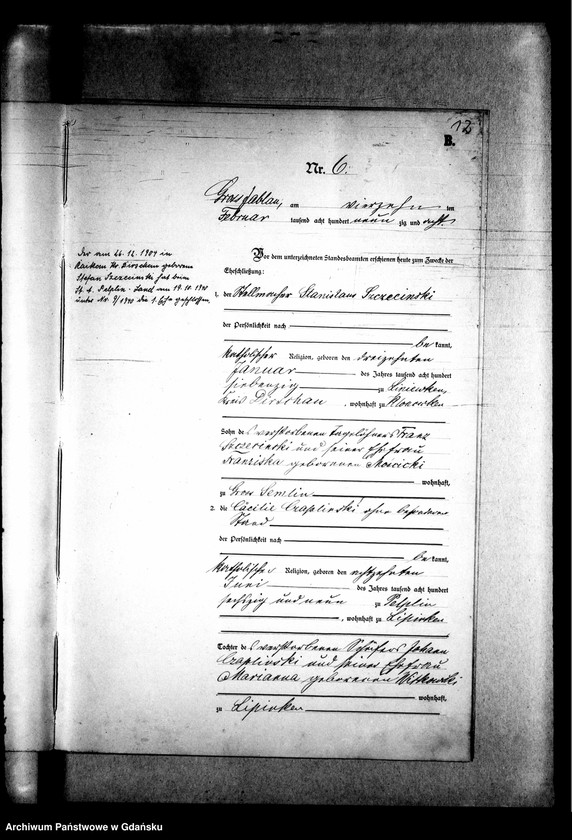 12
B.
Nr. 6.
Gross Jablau, am vierzehn ten
Februar tausend acht hundert neun zig und acht.
Der am 26.12.1904 in
Raikau Kr. Dirschau geborene
Stefan Szczecinski hat beim
St. A. Pelplin-Land am 19.10.1940
unter Nr. 9/1940 die 1. Ehe geschlossen
Vor dem unterzeichneten Standesbeamten erschienen heute zum Zwecke der
Eheschließung:
1. der Stellmacher Stanislaus Szczecinski
der Persönlichkeit nach
be kannt,
katholischer Religion, geboren den dreizehnten
Januar des Jahres tausend acht hundert
siebenzig zu
Kreis Dirschau, wohnhaft zu
Sohn des verstorbenen Tagelöhners Franz
Szczecinski und seiner Ehefrau
Franziska geborenen Moscicki
wohnhaft,
zu Gross Semlin
2. die Cäcilie Czaplinski ohne besonderen
Stand
der Persönlichkeit nach
be kannt,
katholischer Religion, geboren den achtzehnten
Juni des Jahres tausend acht hundert
sechszig und neun zu Pelplin
, wohnhaft zu Lipinken
Tochter des verstorbenen Schäfers Johann
Czaplinski und seiner Ehefrau
Marianna geborenen Witkowski
wohnhaft,
zu Lipinken
Archiwum Państwowe w Gdańsku